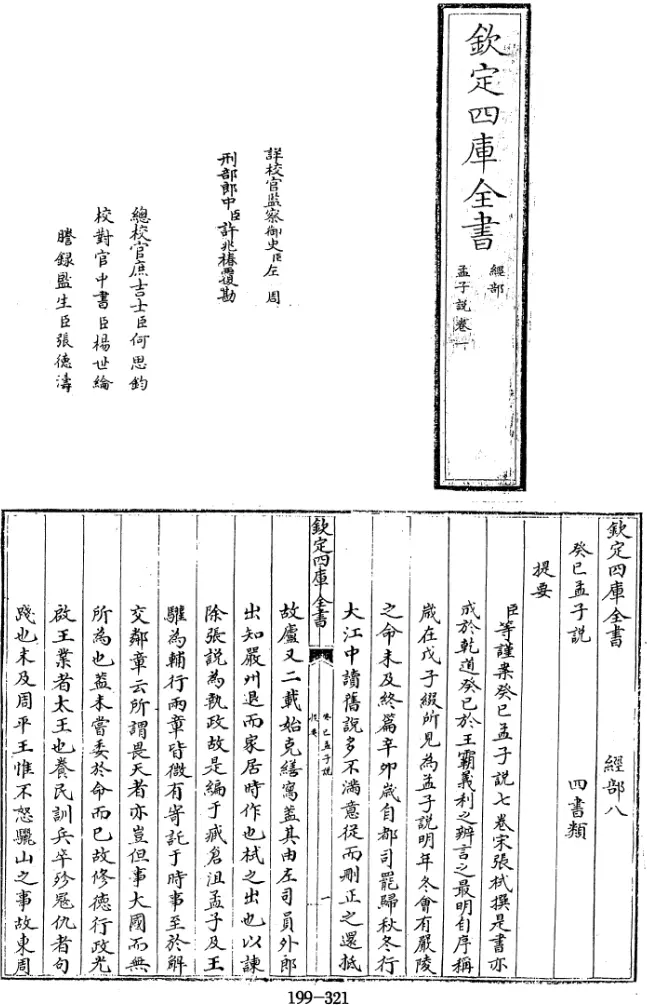 欽定四庫全書
經部
孟子說卷一
詳校官監察御史臣左周
刑部郎中臣許兆椿覆勘
總校官庶吉士臣何思鈞
校對官中書臣楊世綸
謄錄監生臣張德濤
欽定四庫全書 經部八
癸巳孟子說 四書類
提要
臣等謹案癸巳孟子說七卷宋張栻撰是書亦
成於乾道癸巳於王霸義利之辨言之最明自序稱
歲在戊子綴所見為孟子說明年冬會有嚴陵
之命未及終篇辛卯歲自都司罷歸秋冬行
大江中讀舊說多不滿意從而刪正之還抵
欽定四庫全書
癸巳孟子說
提要
一
故廬又二載始克繕寫蓋其由左司員外郎
出知嚴州退而家居時作也栻之出也以諫
除張說為執政故是編于臧倉沮孟子及王
驩為輔行兩章皆微有寄託于時事至於解
交鄰章云所謂畏天者亦豈但事大國而無
所為也蓋未嘗委於命而已故修德行政光
啟王業者太王也養民訓兵卒殄冦仇者句
踐也未及周平王惟不怒驪山之事故東周
199-321